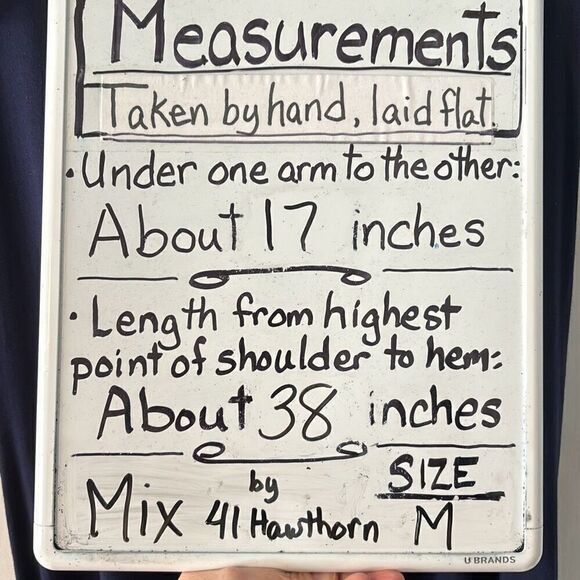 Measurements
Taken by hand, laid flat.
• Under one arm to the other:
About 17 inches
• Length from highest
point of shoulder to hem:
About 38 inches
Mix by 41 Hawthorn
SIZE
M
U BRANDS